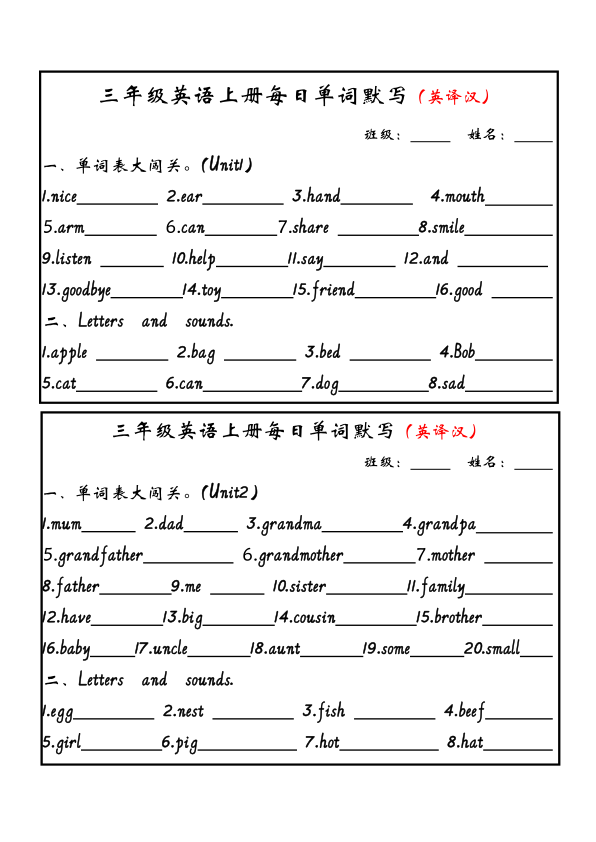 三年级英语上册每日单词默写（英译汉）
班级：_____ 姓名：_____
一、单词表大闯关。(Unit1)
1.nice__________ 2.ear__________ 3.hand_________ 4.mouth_________
5.arm_________ 6.can_________7.share __________8.smile___________
9.listen ________ 10.help_________11.say_________ 12.and ___________
13.goodbye_________14.toy_________15.friend__________16.good ________
二、Letters and sounds.
1.apple _________ 2.bag _________ 3.bed __________ 4.Bob__________
5.cat__________ 6.can____________7.dog___________8.sad___________
三年级英语上册每日单词默写（英译汉）
班级：_____ 姓名：_____
一、单词表大闯关。(Unit2)
1.mum_______ 2.dad_______ 3.grandma__________4.grandpa__________
5.grandfather___________ 6.grandmother_________7.mother _________
8.father_________9.me _______ 10.sister__________11.family___________
12.have_________13.big_________14.cousin__________15.brother_________
16.baby______17.uncle________18.aunt________19.some_______20.small____
二、Letters and sounds.
1.egg__________ 2.nest __________ 3.fish __________ 4.beef________
5.girl__________6.pig____________ 7.hot____________ 8.hat_________